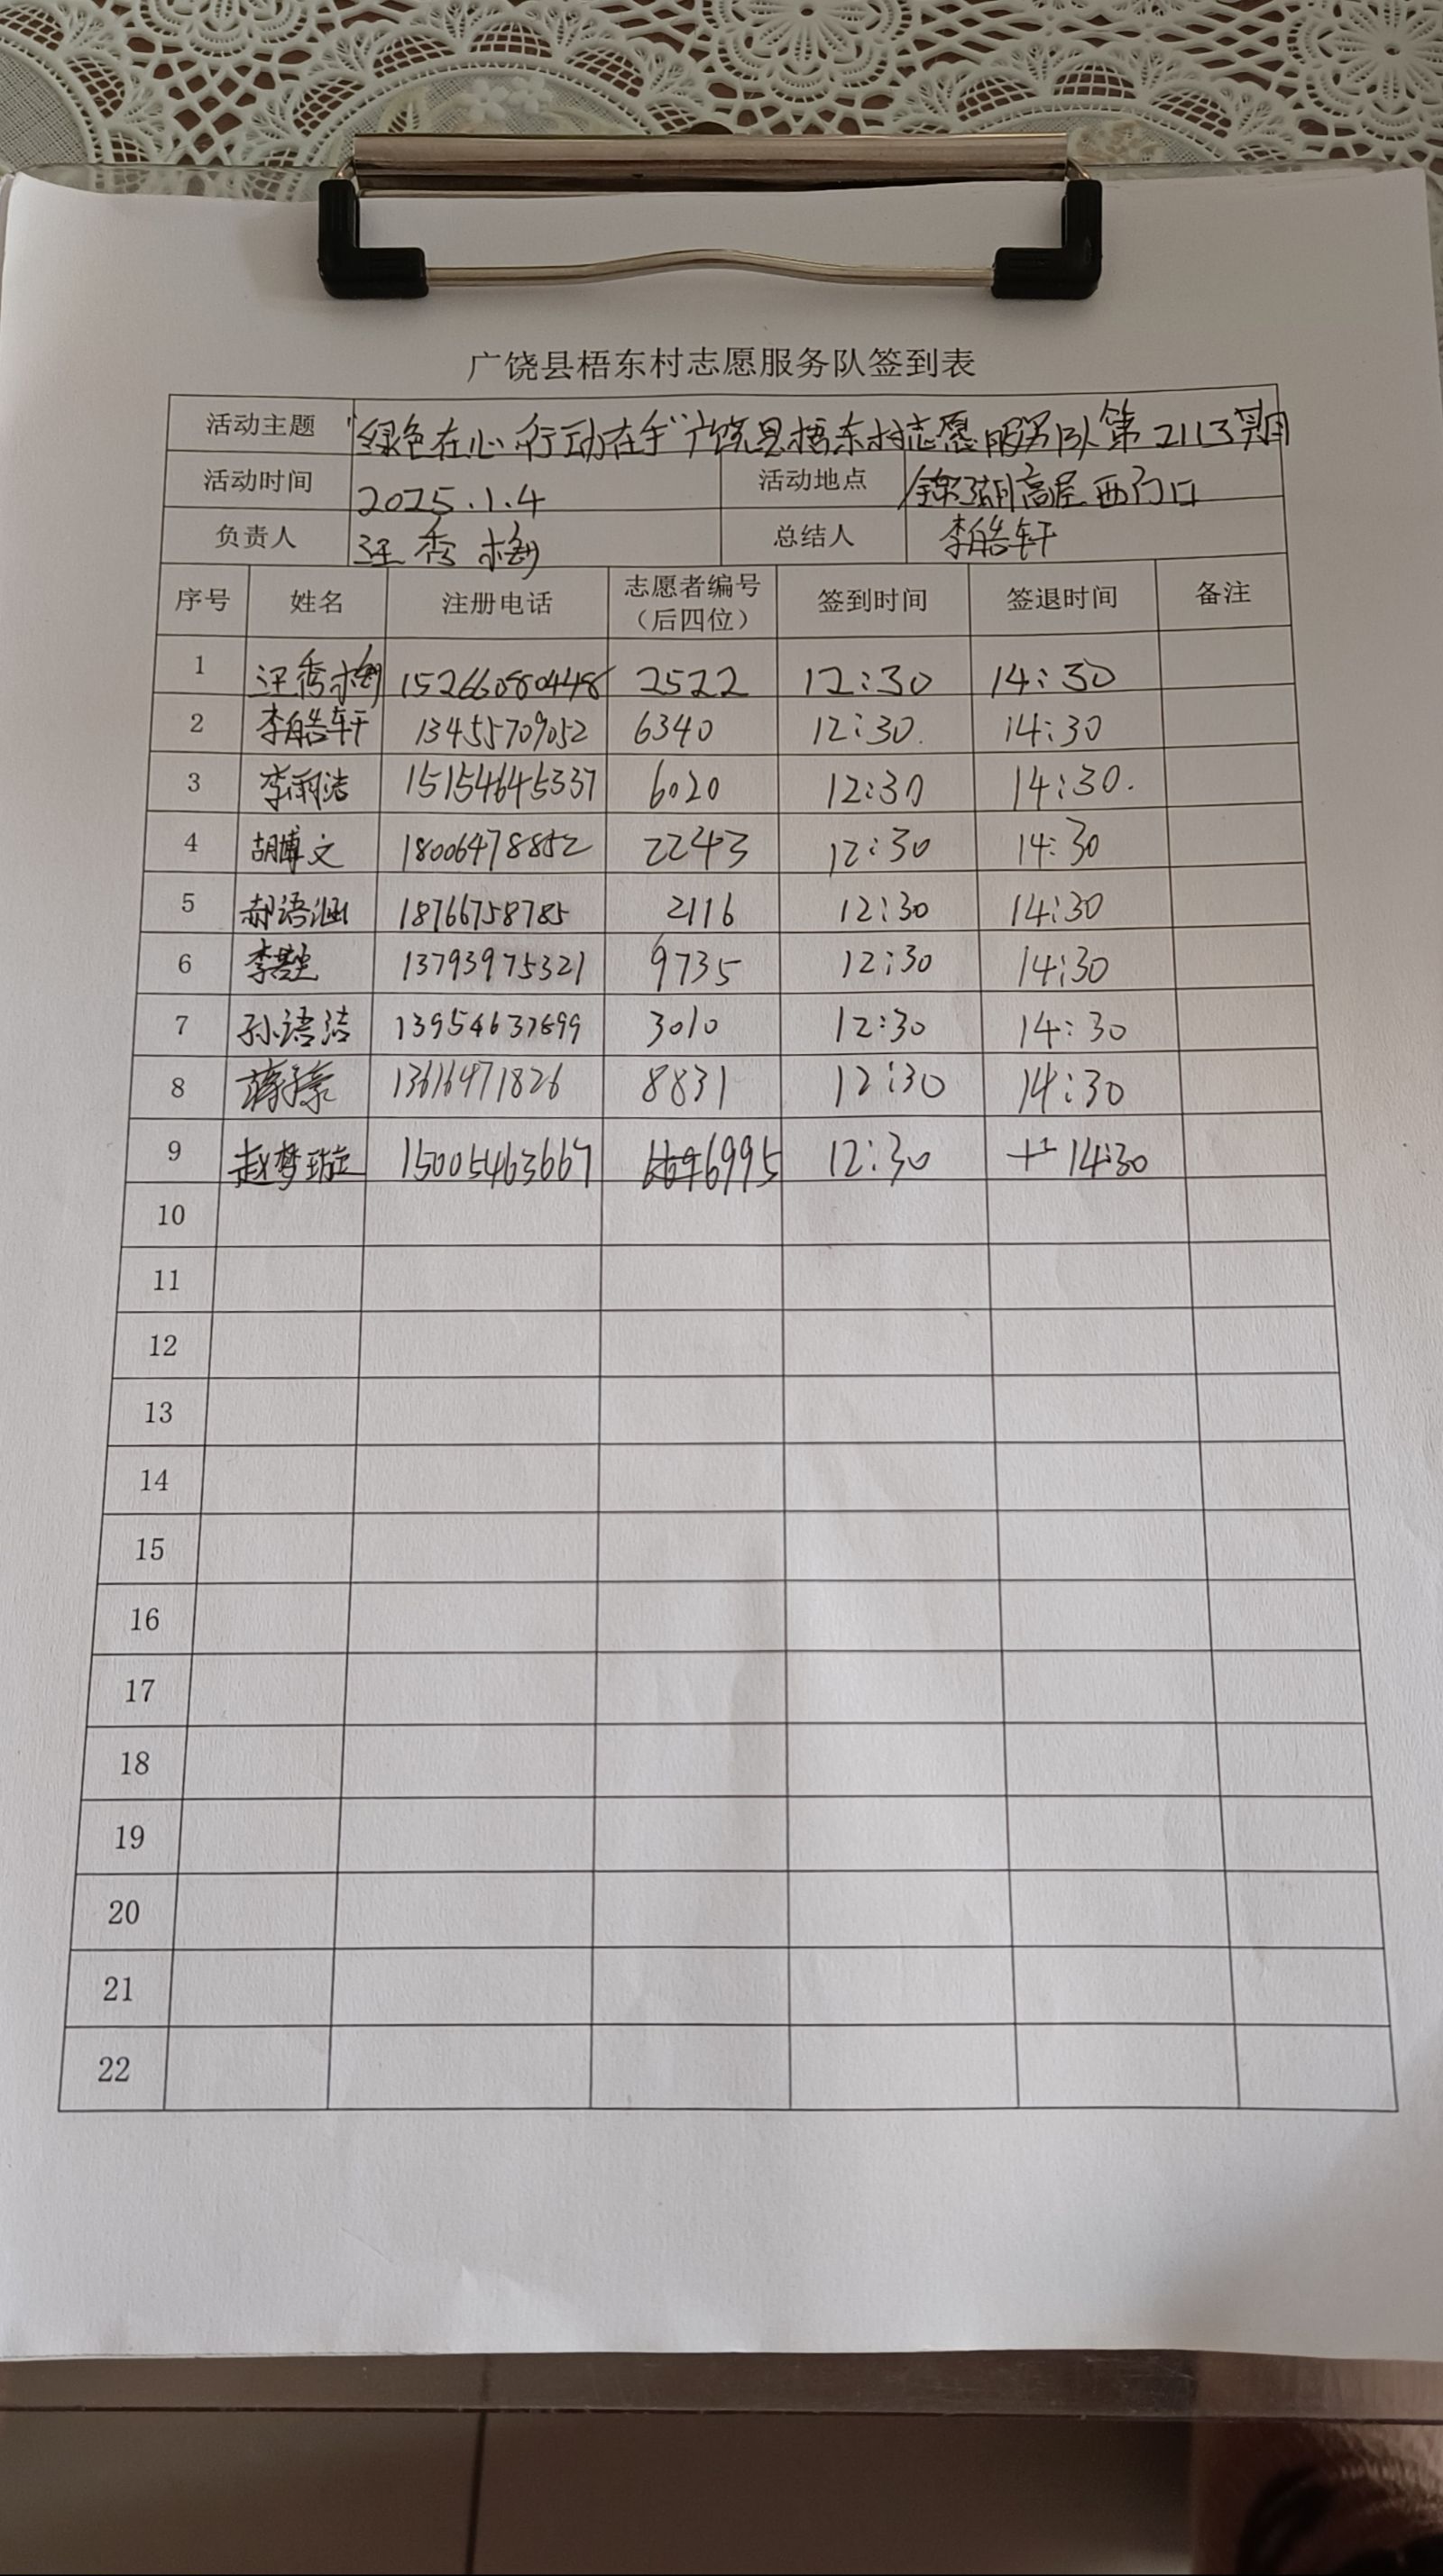 广饶县梧东村志愿服务队签到表
活动主题 "绿色在心 行动在手"广饶县梧东村志愿服务队第2113期
活动时间 2025.1.4 活动地点 锦湖高层西门口
负责人 汪秀梅 总结人 李皓轩
序号 姓名 注册电话 志愿者编号(后四位) 签到时间 签退时间 备注
1 汪秀梅 15266080448 2522 12:30 14:30
2 李皓轩 13455709052 6340 12:30. 14:30
3 李雨洁 15154645337 6020 12:30 14:30.
4 胡博文 18006478852 2243 12:30 14:30
5 郝语涵 18766758785 2116 12:30 14:30
6 李 13793975321 9735 12:30 14:30
7 孙语洁 13954637899 3010 12:30 14:30
8 13616471826 8831 12:30 14:30
9 赵梦璇 15005463667 6995 12:30 14:30
10
11
12
13
14
15
16
17
18
19
20
21
22